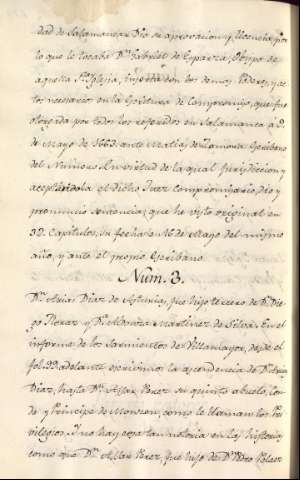 dad de Salamanca, Dio su aprovacion, y licencia, por
lo que le tocaba Dn. Gabriel de Esparza, Obispo de
aquella Sta. Iglesia, inserta con los demas Poderes, y ac
tos necesarios en la Escritura de Compromiso, que fue
otorgada por todos los referidos en Salamanca à 2.
de Mayo de 1663. ante Matias de Zamora Escribano
del Numero. En virtud de la qual Jurisdiccion y
aceptandola el dicho Juez Compromisario, dio y
pronuncio Sentencia, que he visto original en
32. Capitulos, su fecha à 16 de Mayo del mismo
año, y ante el propio Escribano.
Num. 3.
Dn. Arias Diaz de Asturia, fue hijo tercero de D. Die
go Perez y Da. Martinez de Silva. En el
informe de los Sarmientos de Villamayor, desde el
fol. 99 adelante escrivimos la ascendencia de Dn.
Diaz, hasta Dn. Assur Perez su quinto abuelo, Con
de y Principe de Monzon, como le llaman los Pri
vilegios. Y no hay cosa tan notoria en las historias
como que Dn. Assur Perez, fue hijo de Dn. Pedro Palaez